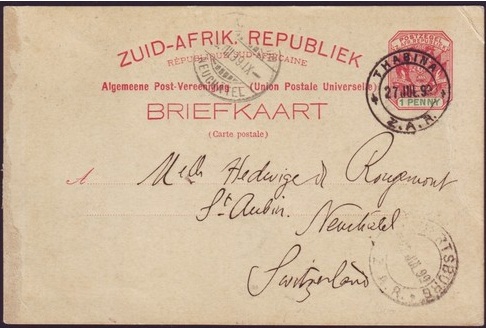 ZUID-AFRIK. REPUBLIEK
RÉPUBLIQUE SUD-AFRICAINE
Algemeene Post-Vereeniging (Union Postale Universelle)
BRIEFKAART
(Carte postale)
1 PENNY
THABINA
27 JUL 99
Z.A.R.
A Melle Hedwige de Rougemont
St Aubin.
Neuchâtel
Switzerland
JUL 99
Z.A.R.